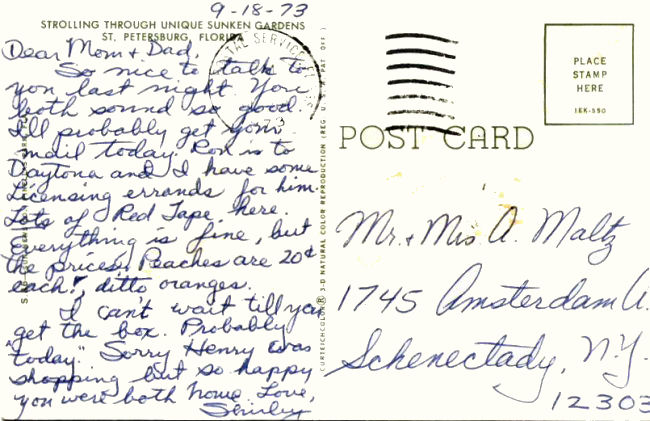 9-18-73
STROLLING THROUGH UNIQUE SUNKEN GARDENS
ST. PETERSBURG, FLORIDA
Dear Mom + Dad,
So nice to talk to
you last night. You
both sound so good.
I'll probably get your
mail today. Ron is to
Daytona and I have some
Licensing errands for him.
Lots of Red Tape, here.
Everything is fine, but
the prices! Peaches are 20¢
each!, ditto oranges.
I can't wait till you
get the box. Probably
"today." Sorry Henry was
shopping but so happy
you were both home. Love,
Shirley
CURTEICHCOLOR® 3-D NATURAL COLOR REPRODUCTION (REG. U.S. PAT. OFF.)
POST CARD
PLACE
STAMP
HERE
Mr. + Mrs A. Maltz
1745 Amsterdam A.
Schenectady, N.Y.
12303